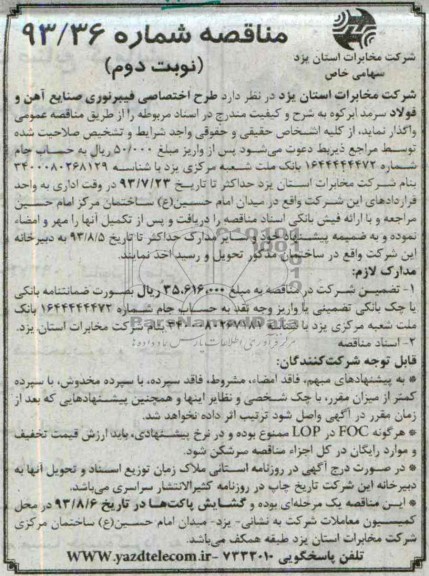 مناقصه شماره ۹۳/۳۶
(نوبت دوم)
شرکت مخابرات استان یزد
سهامی خاص
شرکت مخابرات استان یزد در نظر دارد طرح اختصاصی فیبرنوری صنایع آهن و
فولاد سرمد ابرکوه به شرح و کیفیت مندرج در اسناد مربوطه را از طریق مناقصه عمومی
واگذار نماید، از کلیه اشخاص حقیقی و حقوقی واجد شرایط و تشخیص صلاحیت شده
توسط مراجع ذیربط دعوت می‌شود پس از واریز مبلغ ۵۰/۰۰۰ ریال به حساب جام
شماره ۱۶۴۴۴۴۴۴۷۲ بانک ملت شعبه مرکزی یزد با شناسه ۳۴۰۰۰۸۰۲۶۸۱۲۹
بنام شرکت مخابرات استان یزد حداکثر تا تاریخ ۹۳/۷/۲۳ در وقت اداری به واحد
قراردادهای این شرکت واقع در میدان امام حسین(ع) ساختمان مرکز امام حسین
مراجعه و با ارائه فیش بانکی اسناد مناقصه را دریافت و پس از تکمیل آنها را مهر و امضاء
نموده و به ضمیمه پیشنهاد خود و سایر مدارک حداکثر تا تاریخ ۹۳/۸/۵ به دبیرخانه
این شرکت واقع در ساختمان مذکور تحویل و رسید اخذ نمایند.
مدارک لازم:
۱- تضمین شرکت در مناقصه به مبلغ ۳۵.۶۱۶.۰۰۰ ریال بصورت ضمانتنامه بانکی
یا چک بانکی تضمینی یا واریز وجه نقد به حساب جام شماره ۱۶۴۴۴۴۴۴۷۲ بانک
ملت شعبه مرکزی یزد با بنام شرکت مخابرات استان یزد.
۲- اسناد مناقصه
قابل توجه شرکت‌کنندگان:
* به پیشنهادهای مبهم، فاقد امضاء، مشروط، فاقد سپرده، یا سپرده مخدوش، یا سپرده
کمتر از میزان مقرر، با چک شخصی و نظایر اینها و همچنین پیشنهادهایی که بعد از
زمان مقرر در آگهی واصل شود ترتیب اثر داده نخواهد شد.
* هرگونه FOC در LOP ممنوع بوده و در نرخ پیشنهادی، باید ارزش قیمت تخفیف
و موارد رایگان در کل اجزاء مناقصه سرشکن شود.
* در صورت درج آگهی در روزنامه استانی ملاک زمان توزیع اسناد و تحویل آنها به
دبیرخانه این شرکت تاریخ چاپ در روزنامه کثیرالانتشار سراسری می‌باشد.
* این مناقصه یک مرحله‌ای بوده و گشایش پاکت‌ها در تاریخ ۹۳/۸/۶ در محل
کمیسیون معاملات شرکت به نشانی- یزد- میدان امام حسین(ع) ساختمان مرکزی
شرکت مخابرات استان یزد طبقه همکف می‌باشد.
تلفن پاسخگویی ۷۲۳۳۰۱۰ -WWW.yazdtelecom.ir